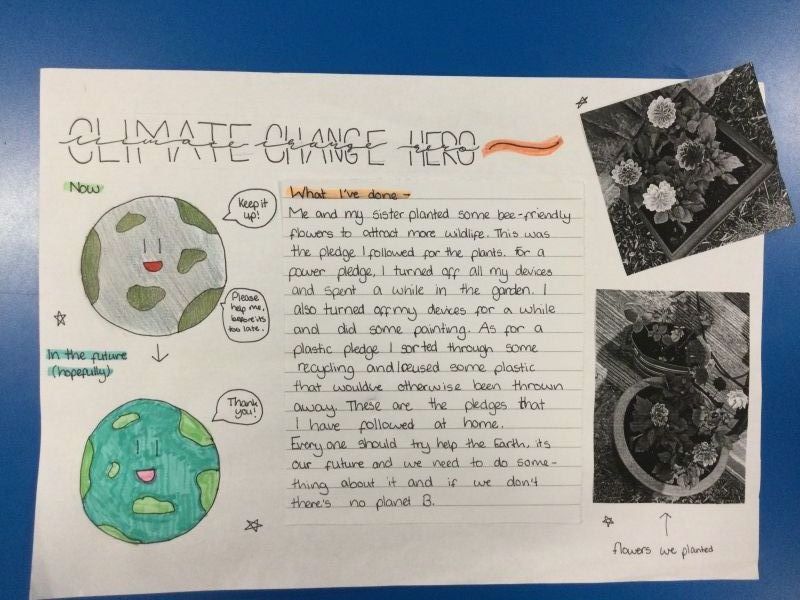 CLIMATE CHANGE HERO
climate change hero
Now
Keep it
up!
Please
help me,
before its
too late.
In the future
(hopefully)
Thank
you!
What I've done -
Me and my sister planted some bee-friendly
flowers to attract more wildlife. This was
the pledge I followed for the plants. For a
power pledge, I turned off all my devices
and spent a while in the garden. I
also turned off my devices for a while
and did some painting. As for a
plastic pledge I sorted through some
recycling and reused some plastic
that wouldve otherwise been thrown
away. These are the pledges that
I have followed at home.
Everyone should try help the Earth, its
our future and we need to do some-
thing about it and if we don't
there's no planet B.
flowers we planted